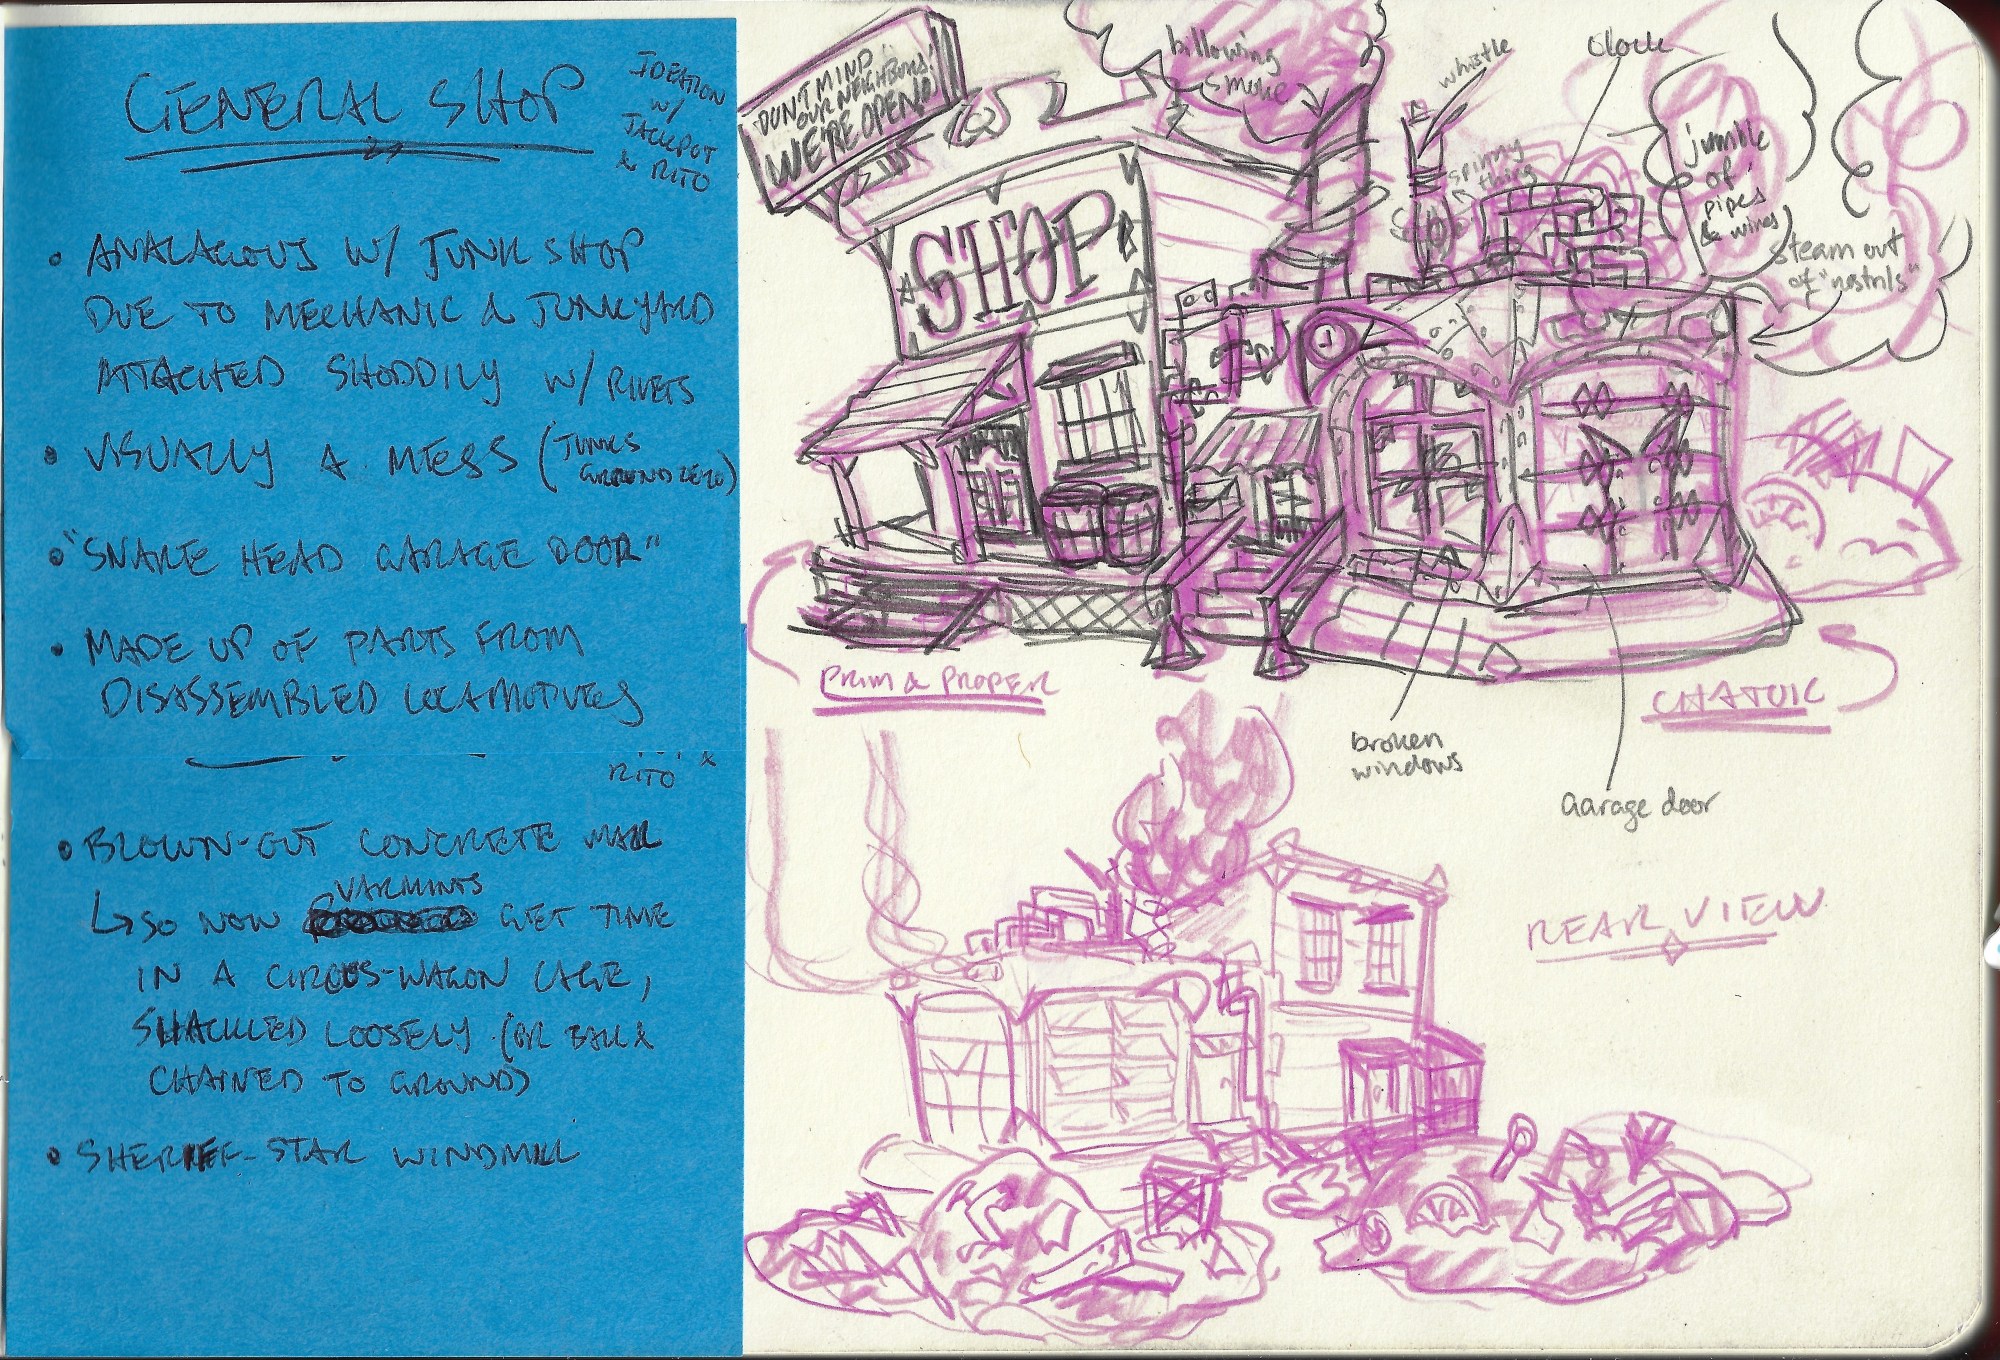 GENERAL SHOP
IDEATION
W/
JACKPOT
& RITO
• ANALAGOUS W/ JUNK SHOP
DUE TO MECHANIC & JUNKYARD
ATTACHED SHODDILY W/ RIVETS
• VISUALLY A MESS (JUNK'S
GROUND ZERO)
• "SNAKE HEAD GARAGE DOOR"
• MADE UP OF PARTS FROM
DISASSEMBLED LOCAMOTIVES
RITO
• BLOWN-OUT CONCRETE WALL
VARMINTS
↳ SO NOW GET TIME
IN A CIRCUS-WAGON CAGE,
SHACKLED LOOSELY (OR BALL &
CHAINED TO GROUND)
• SHERIFF-STAR WINDMILL
DON'T MIND
OUR NEIGHBORS!
WE'RE OPEN!
SHOP
billowing
smoke
whistle
clock
spinny
thing
jumble
of
pipes
& wires
steam out
of "nostrils"
PRIM & PROPER
CHAOTIC
broken
windows
Garage door
REAR VIEW